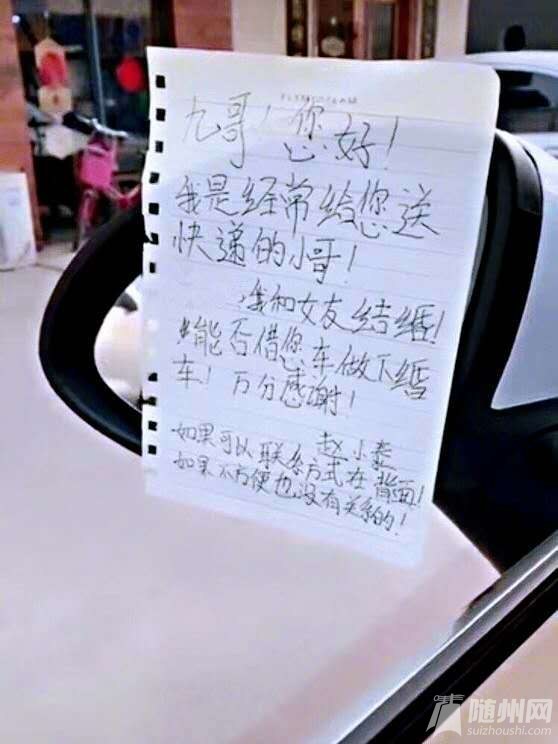 九哥！您好！
我是经常给您送
快递的小哥！
我和女友结婚！
能否借您车做下婚
车！万分感谢！
赵小泰
如果可以联系方式在背面！
如果不方便也没有关系的！
随州网
suizhoushi.com